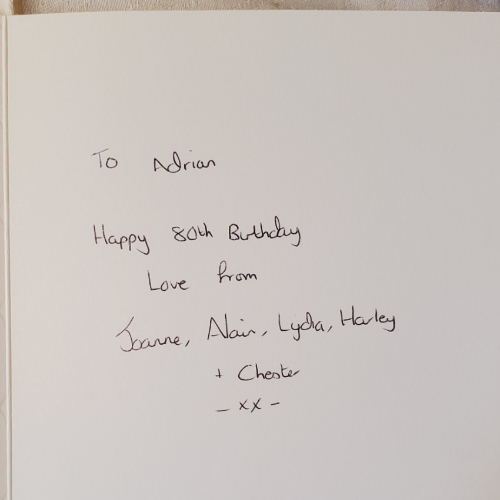 To Adrian
Happy 80th Birthday
Love from
Joanne, Alain, Lydia, Harley
+ Chester
- xx -